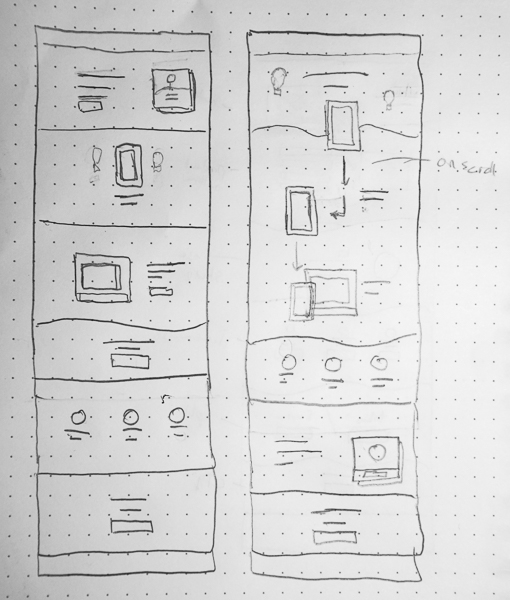 on scroll